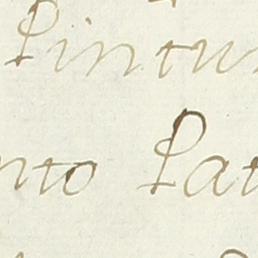 Pintu
nto Pat